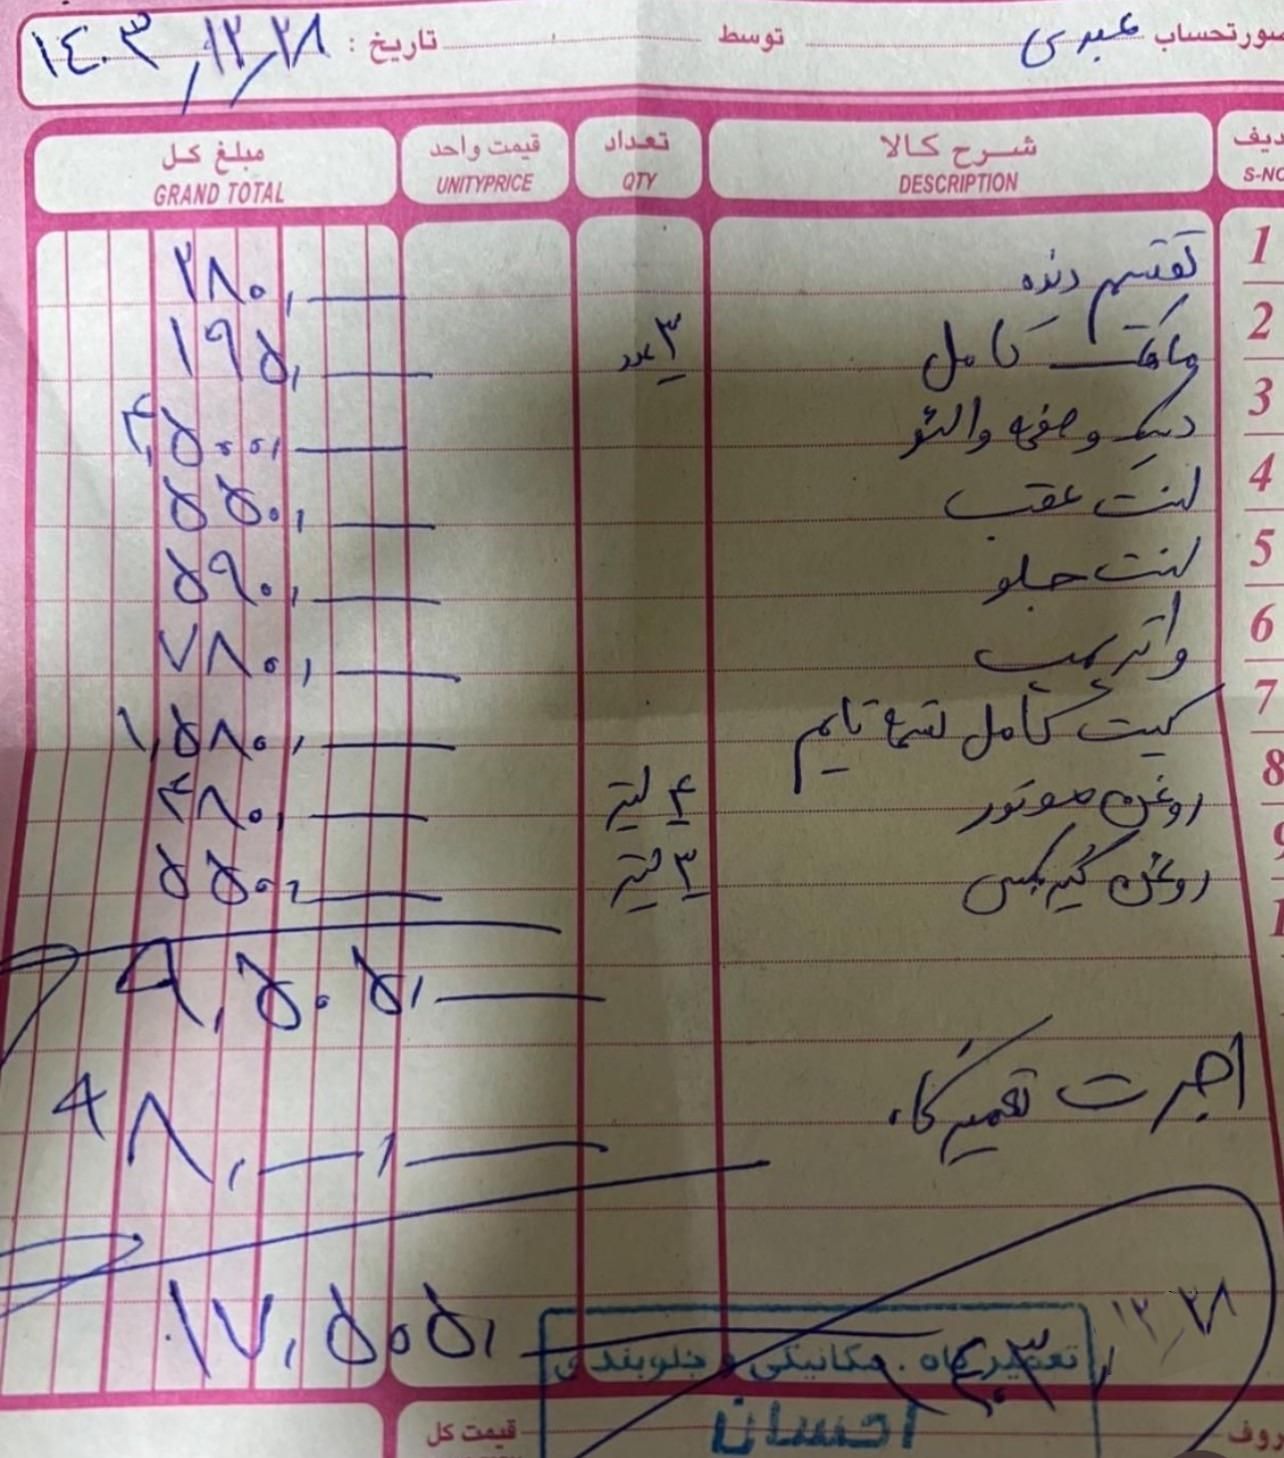 صورتحساب عبدی توسط تاریخ : ۱۴۰۳/۱۲/۲۸
ردیف شرح کالا تعداد قیمت واحد مبلغ کل
S-NO DESCRIPTION QTY UNITYPRICE GRAND TOTAL
1 تقسیم دنده ۲۸۰,___
2 ماهک کامل ۳ عدد ۱۹۵,___
3 دیسک و صفحه والئو ۴,۵۰۰,___
4 لنت عقب ۵۵۰,___
5 لنت جلو ۵۹۰,___
6 واترپمپ ۷۸۰,___
7 کیت کامل تسمه تایم ۱,۵۸۰,___
8 روغن موتور ۴ لیتر ۴۸۰,___
9 روغن گیربکس ۳ لیتر ۵۵۰,___
۹,۵۰۵,___
اجرت تعمیرگاه ۸,___,___
۱۷,۵۰۵,___
۱۴۰۳/۱۲/۲۸
تعمیرگاه مکانیکی و جلوبندی
احسان
قیمت کل